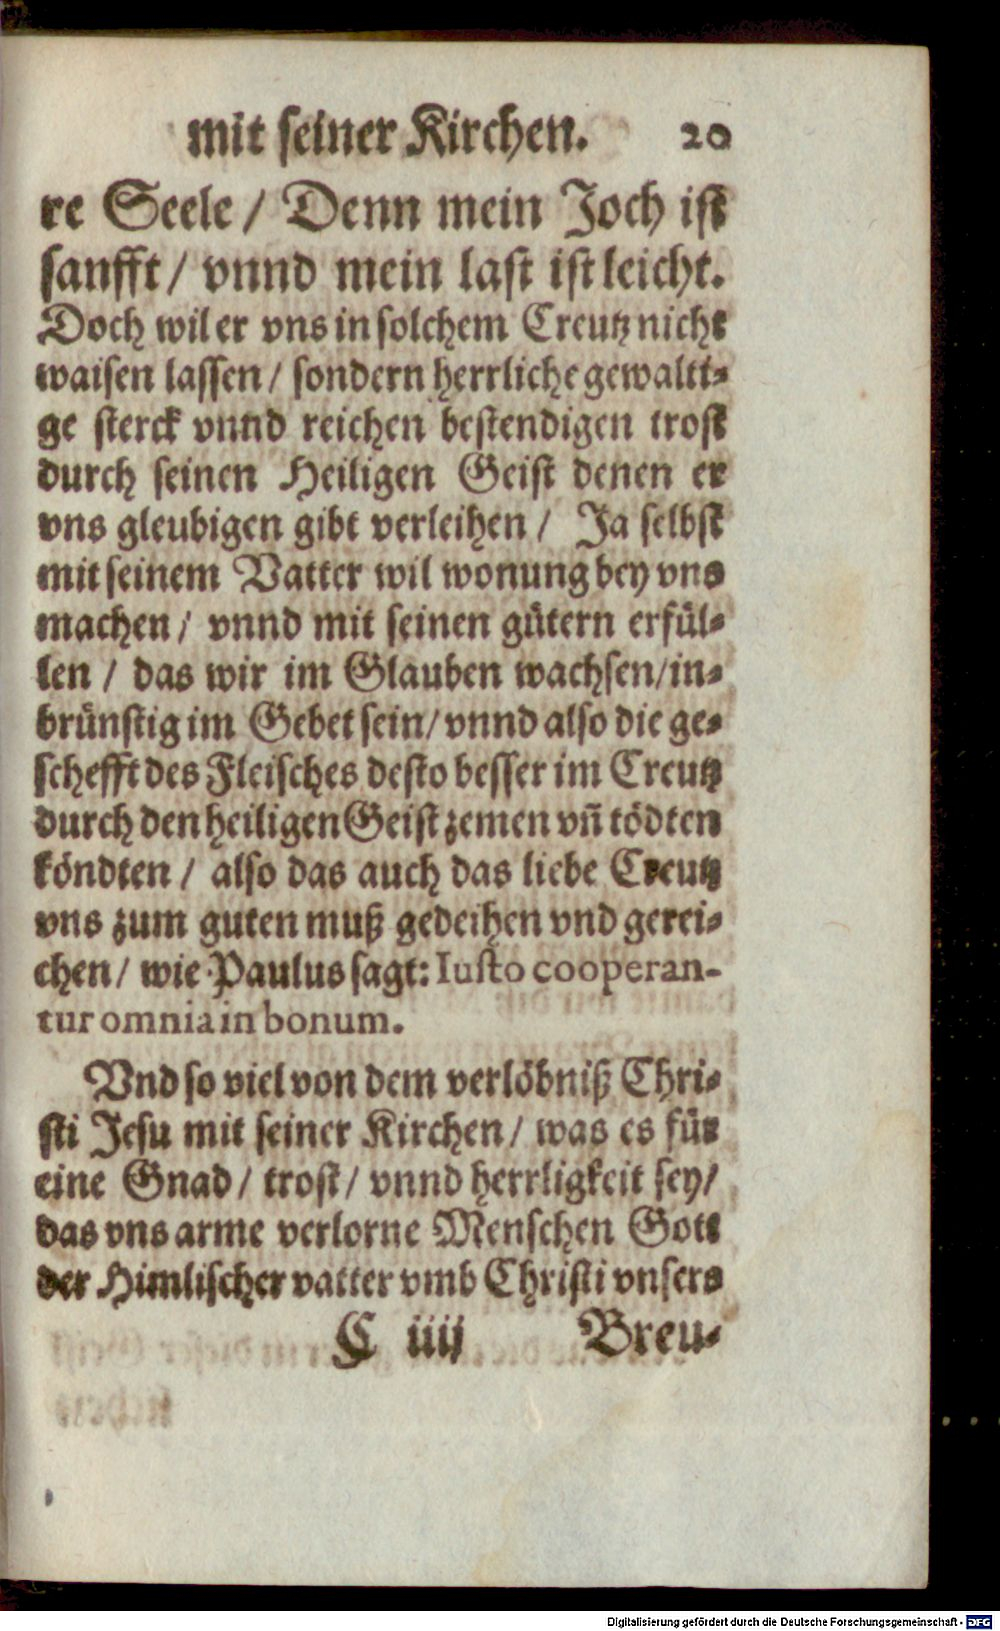 mit seiner Kirchen. 20
re Seele / Denn mein Joch ist
sanfft / vnnd mein last ist leicht.
Doch wil er vns in solchem Creutz nicht
waisen lassen / sondern herrliche gewalti-
ge sterck vnnd reichen bestendigen trost
durch seinen Heiligen Geist denen er
vns gleubigen gibt verleihen / Ja selbst
mit seinem Vatter wil wonung bey vns
machen / vnnd mit seinen gütern erfül-
len / das wir im Glauben wachsen / in-
brünstig im Gebet sein / vnnd also die ge-
schefft des Fleisches desto besser im Creutz
durch den heiligen Geist zemen vñ tödten
köndten / also das auch das liebe Creutz
vns zum guten muß gedeihen vnd gerei-
chen / wie Paulus sagt: Iusto cooperan-
tur omnia in bonum.
Vnd so viel von dem verlöbniß Chri-
sti Jesu mit seiner Kirchen / was es für
eine Gnad / trost / vnnd herrligkeit sey /
das vns arme verlorne Menschen Gott
der Himlischer vatter vmb Christi vnsers
C iiij Breu-
Digitalisierung gefördert durch die Deutsche Forschungsgemeinschaft - DFG